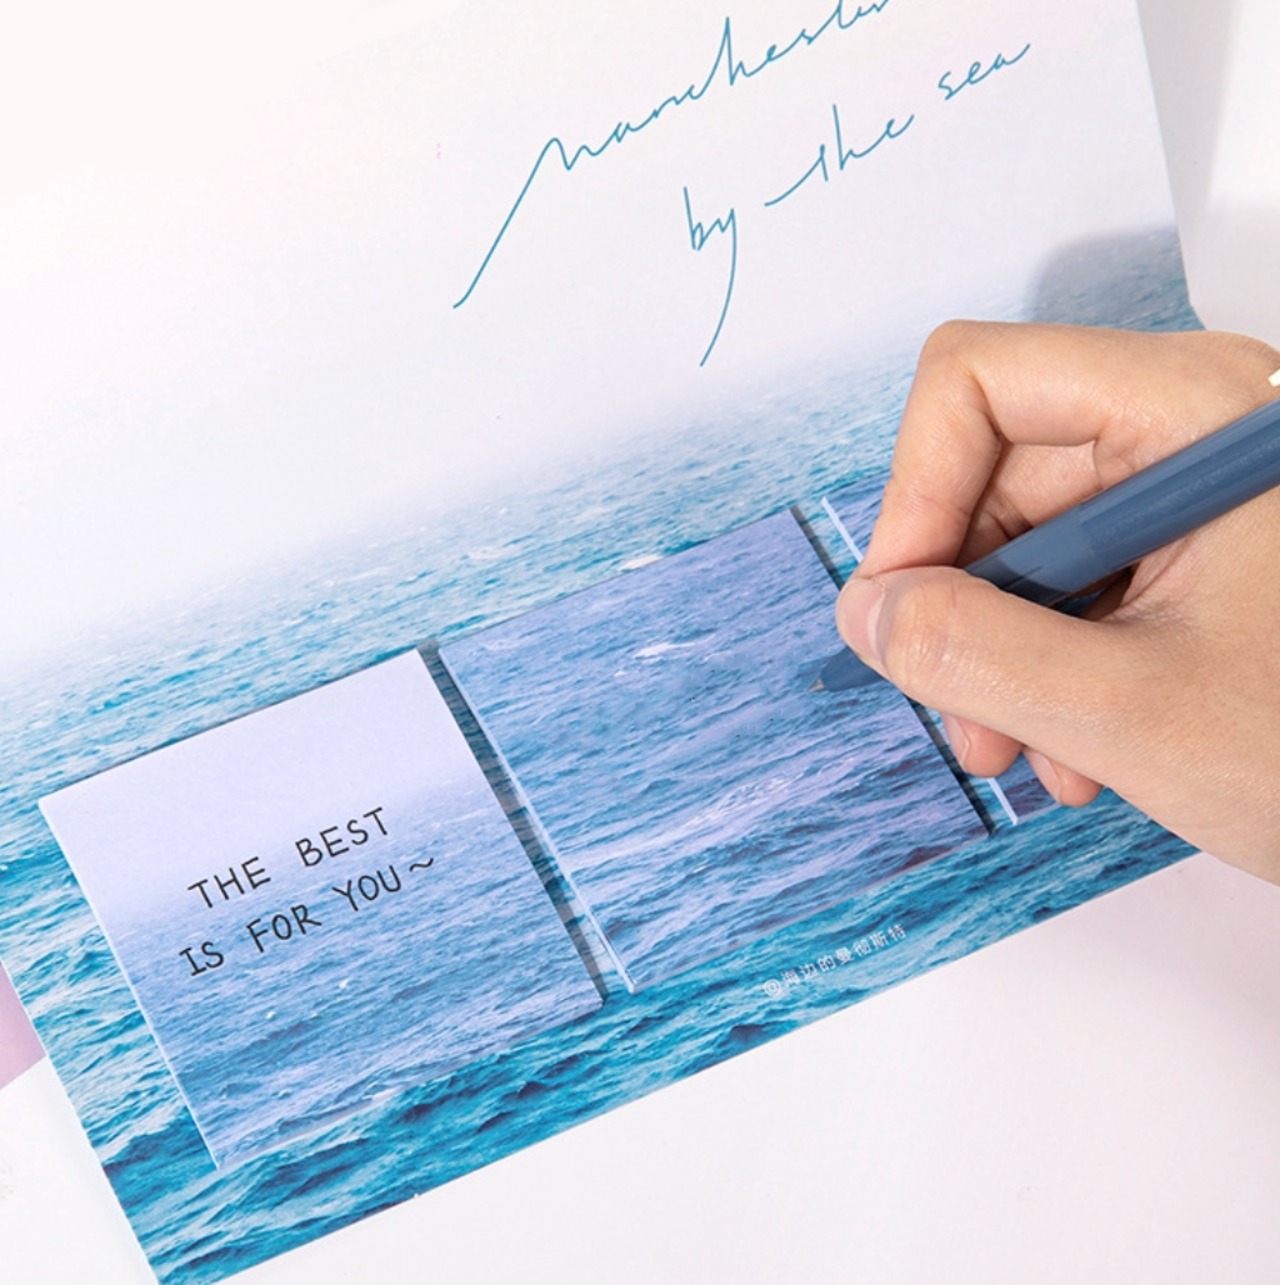 manchester
by the sea
THE BEST
IS FOR YOU~
@海边的曼彻斯特